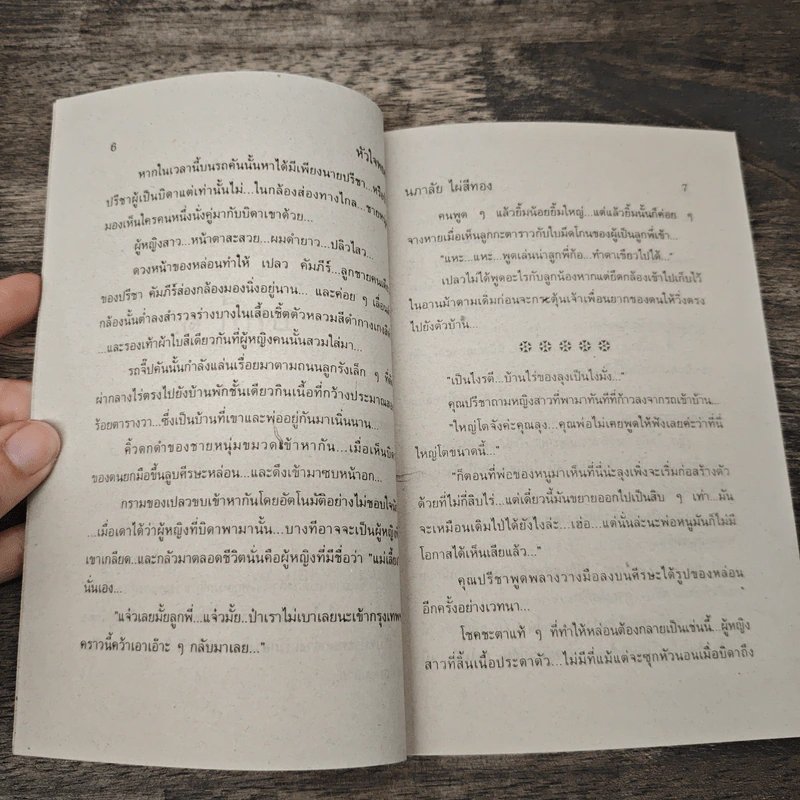 6
หัวใจ
หากในเวลานี้บนรถคันนั้นหาได้มีเพียงนายปรีชา...
ปรีชาผู้เป็นบิดาแต่เท่านั้นไม่...ในกล้องส่องทางไกล...
มองเห็นใครคนหนึ่งนั่งคู่มากับบิดาเขาด้วย...
ผู้หญิงสาว...หน้าตาสะสวย...ผมดำยาว...ปลิวไสว...
ดวงหน้าของหล่อนทำให้ เปลว คัมภีร์...ลูกชายคน
ของปรีชา คัมภีร์ส่องกล้องมองนิ่งอยู่นาน... และค่อย ๆ เลื่อน
กล้องนั้นต่ำลงสำรวจร่างบางในเสื้อเชิ้ตตัวหลวมสีดำกางเกง
...และรองเท้าผ้าใบสีเดียวกันที่ผู้หญิงคนนั้นสวมใส่มา...
รถจี๊ปคันนั้นกำลังแล่นเรื่อยมาตามถนนลูกรังเล็ก ๆ
ผ่ากลางไร่ตรงไปยังบ้านพักชั้นเดียวกินเนื้อที่กว้างประมาณ
ร้อยตารางวา...ซึ่งเป็นบ้านที่เขาและพ่ออยู่กันมาเนิ่นนาน...
คิ้วดกดำของชายหนุ่มขมวดเข้าหากัน...เมื่อเห็น
ของตนยกมือขึ้นลูบศีรษะหล่อน...และดึงเข้ามาซบหน้าอก...
กรามของเปลวขบเข้าหากันโดยอัตโนมัติอย่างไม่ชอบใจ
...เมื่อเดาได้ว่าผู้หญิงที่บิดาพามานั้น...บางทีอาจจะเป็นผู้หญิง
เขาเกลียด..และกลัวมาตลอดชีวิตนั่นคือผู้หญิงที่มีชื่อว่า "แม่เลี้ยง
นั่นเอง...
"แจ๋วเลยมั้ยลูกพี่...แจ๋วมั้ย..ป๋าเราไม่เบาเลยนะเข้ากรุงเทพ
คราวนี้คว้าเอาเอ๊าะ ๆ กลับมาเลย..."
นภาลัย ไผ่สีทอง
7
คนพูด ๆ แล้วยิ้มน้อยยิ้มใหญ่...แต่แล้วยิ้มนั้นก็ค่อย ๆ
จางหายเมื่อเห็นลูกกะตาราวกับใบมีดโกนของผู้เป็นลูกพี่เข้า...
"แหะ...แหะ...พูดเล่นน่าลูกพี่ก็อ...ทำตาเขียวไปได้..."
เปลวไม่ได้พูดอะไรกับลูกน้องหากแต่ยึดกล้องเข้าไปเก็บไว้
ในอานม้าตามเดิมก่อนจะกระตุ้นเจ้าเพื่อนยากของตนให้วิ่งตรง
ไปยังตัวบ้าน...
"เป็นไงรตี...บ้านไร่ของลุงเป็นไงมั่ง..."
คุณปรีชาถามหญิงสาวที่พามาทันทีที่ก้าวลงจากรถเข้าบ้าน...
"ใหญ่โตจังค่ะคุณลุง...คุณพ่อไม่เคยพูดให้ฟังเลยค่ะว่าที่นี่
ใหญ่โตขนาดนี้..."
"ก็ตอนที่พ่อของหนูมาเห็นที่นี่น่ะลุงเพิ่งจะเริ่มก่อสร้างตัว
ด้วยที่ไม่กี่สิบไร่...แต่เดี๋ยวนี้มันขยายออกไปเป็นสิบ ๆ เท่า...มัน
จะเหมือนเดิมไปได้ยังไงล่ะ...เฮ่อ...แต่นั่นล่ะนะพ่อหนูมันก็ไม่มี
โอกาสได้เห็นเสียแล้ว..."
คุณปรีชาพูดพลางวางมือลงบนศีรษะได้รูปของหล่อน
อีกครั้งอย่างเวทนา...
โชคชะตาแท้ ๆ ที่ทำให้หล่อนต้องกลายเป็นเช่นนี้...ผู้หญิง
สาวที่สิ้นเนื้อประดาตัว...ไม่มีที่แม้แต่จะซุกหัวนอนเมื่อบิดาถึง